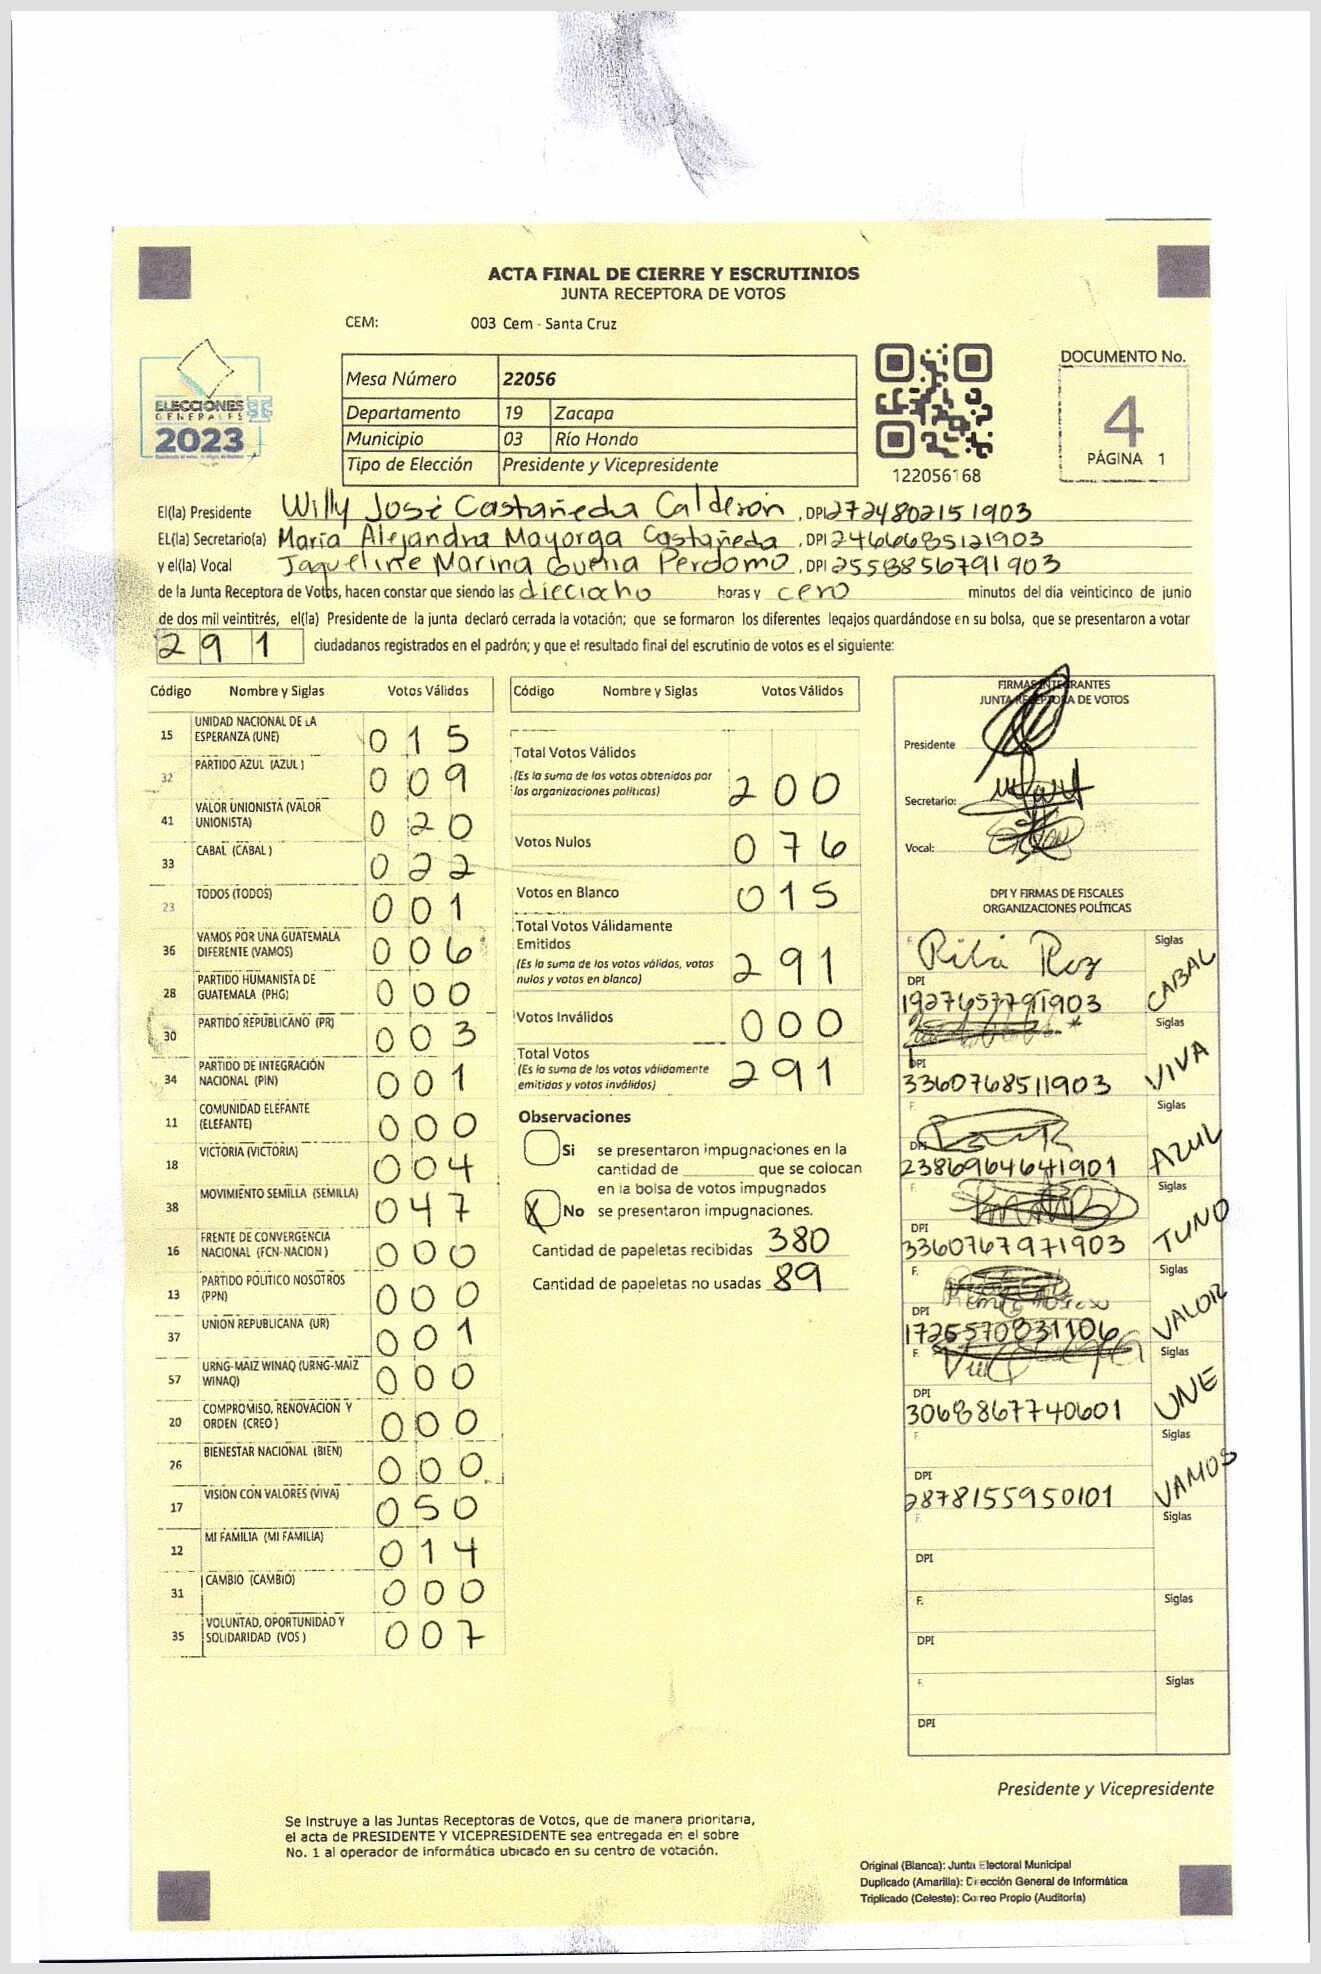 ACTA FINAL DE CIERRE Y ESCRUTINIOS
JUNTA RECEPTORA DE VOTOS
CEM: 003 Cem - Santa Cruz
ELECCIONES
GENERALES
2023
Mesa Número 22056
Departamento 19 Zacapa
Municipio 03 Río Hondo
Tipo de Elección Presidente y Vicepresidente
122056168
DOCUMENTO No.
4
PÁGINA 1
El(la) Presidente Willy José Castañeda Calderón, DPI 2724802151903
EL(la) Secretario(a) María Alejandra Mayorga Castañeda, DPI 2466685121903
y el(la) Vocal Jaqueline Marina Perdomo, DPI 2558856791903
de la Junta Receptora de Votos, hacen constar que siendo las dieciocho horas y cero minutos del día veinticinco de junio
de dos mil veintitrés, el(la) Presidente de la junta declaró cerrada la votación; que se formaron los diferentes legajos guardándose en su bolsa, que se presentaron a votar
291 ciudadanos registrados en el padrón; y que el resultado final del escrutinio de votos es el siguiente:
Código Nombre y Siglas Votos Válidos
15 UNIDAD NACIONAL DE LA ESPERANZA (UNE) 015
32 PARTIDO AZUL (AZUL) 009
41 VALOR UNIONISTA (VALOR UNIONISTA) 020
33 CABAL (CABAL) 022
23 TODOS (TODOS) 001
36 VAMOS POR UNA GUATEMALA DIFERENTE (VAMOS) 006
28 PARTIDO HUMANISTA DE GUATEMALA (PHG) 000
30 PARTIDO REPUBLICANO (PR) 003
34 PARTIDO DE INTEGRACIÓN NACIONAL (PIN) 001
11 COMUNIDAD ELEFANTE (ELEFANTE) 000
18 VICTORIA (VICTORIA) 004
38 MOVIMIENTO SEMILLA (SEMILLA) 047
16 FRENTE DE CONVERGENCIA NACIONAL (FCN-NACION) 000
13 PARTIDO POLITICO NOSOTROS (PPN) 000
37 UNION REPUBLICANA (UR) 001
57 URNG-MAIZ WINAQ (URNG-MAIZ WINAQ) 000
20 COMPROMISO, RENOVACION Y ORDEN (CREO) 000
26 BIENESTAR NACIONAL (BIEN) 000
17 VISION CON VALORES (VIVA) 050
12 MI FAMILIA (MI FAMILIA) 014
31 CAMBIO (CAMBIO) 000
35 VOLUNTAD, OPORTUNIDAD Y SOLIDARIDAD (VOS) 007
Código Nombre y Siglas Votos Válidos
Total Votos Válidos
(Es la suma de los votos obtenidos por
los organizaciones políticas) 200
Votos Nulos 076
Votos en Blanco 015
Total Votos Válidamente
Emitidos
(Es la suma de los votos válidos, votos
nulos y votos en blanco) 291
Votos Inválidos 000
Total Votos
(Es la suma de los votos válidamente
emitidos y votos inválidos) 291
Observaciones
Si se presentaron impugnaciones en la
cantidad de ______ que se colocan
en la bolsa de votos impugnados
X No se presentaron impugnaciones.
Cantidad de papeletas recibidas 380
Cantidad de papeletas no usadas 89
FIRMAS INTEGRANTES
JUNTA RECEPTORA DE VOTOS
Presidente
Secretario:
Vocal:
DPI Y FIRMAS DE FISCALES
ORGANIZACIONES POLÍTICAS
F. Siglas CABAL
DPI 1927657791903
Siglas VIVA
DPI 3360768511903
F. Siglas AZUL
DPI 2386964641901
F. Siglas TUNO
DPI 3360767971903
F. Siglas VALOR
DPI 1725570831106
F. Siglas UNE
DPI 3068867740601
F. Siglas VAMOS
DPI 2878155950101
F. Siglas
DPI
F. Siglas
DPI
F. Siglas
DPI
Presidente y Vicepresidente
Se Instruye a las Juntas Receptoras de Votos, que de manera prioritaria,
el acta de PRESIDENTE Y VICEPRESIDENTE sea entregada en el sobre
No. 1 al operador de informática ubicado en su centro de votación.
Original (Blanca): Junta Electoral Municipal
Duplicado (Amarilla): Dirección General de Informática
Triplicado (Celeste): Correo Propio (Auditoría)